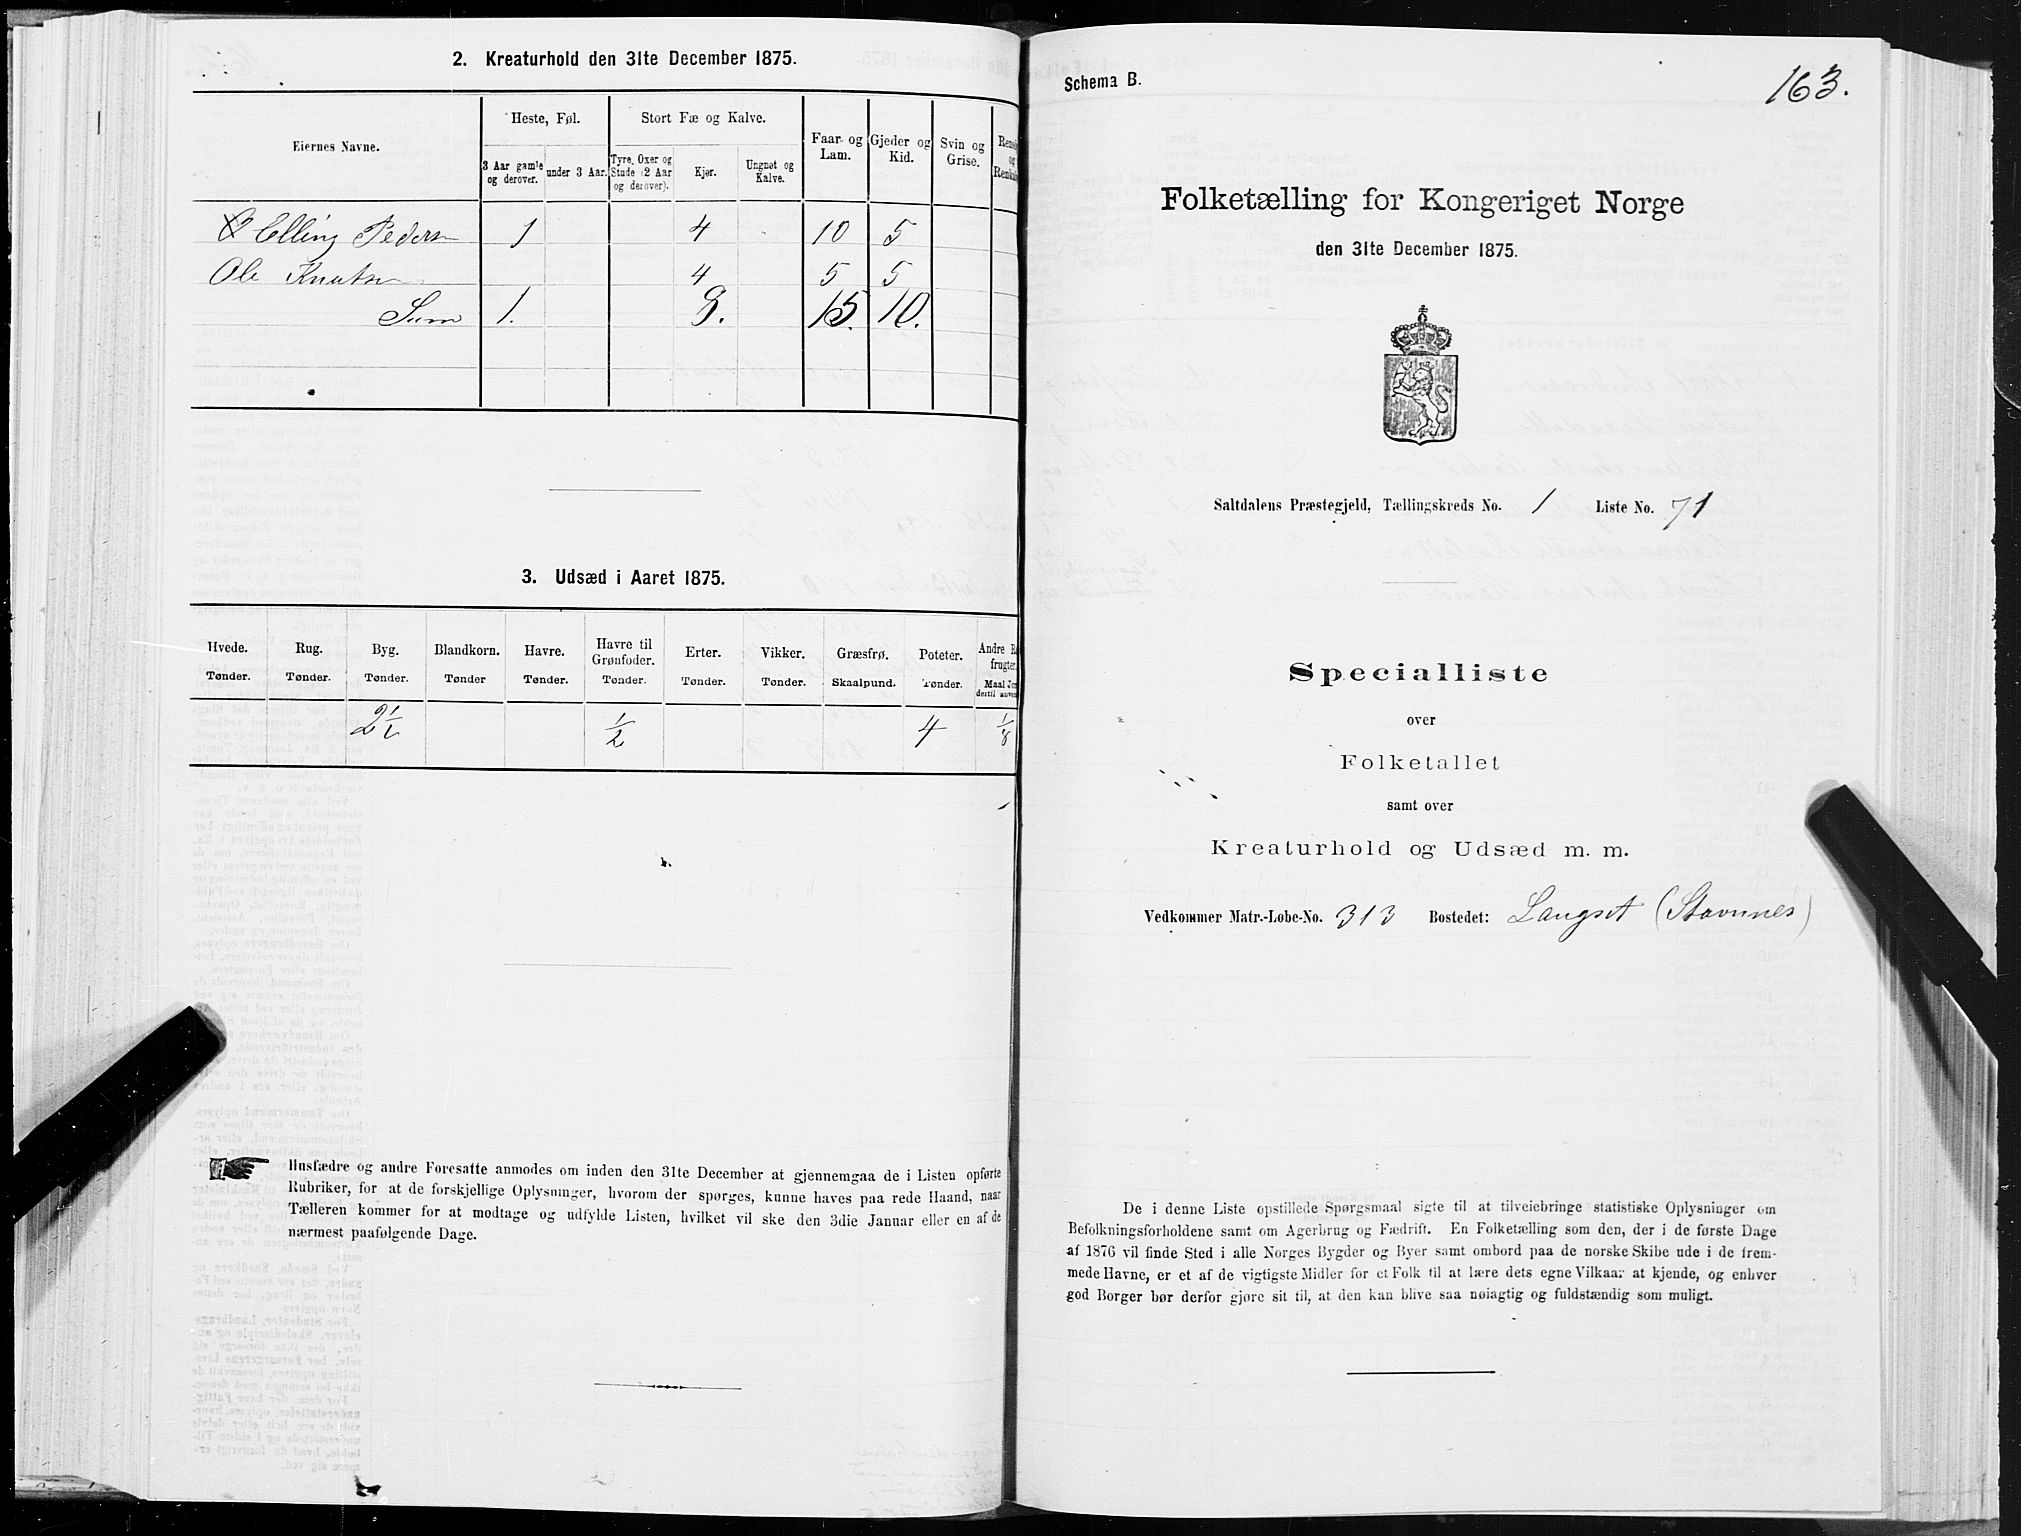 2. Kreaturhold den 31te December 1875.
Eiernes Navne.
Heste, Føl.
Stort Fæ og Kalve.
Faar og Lam.
Gjeder og Kid.
Svin og Grise.
3 Aar gamle og derover.
under 3 Aar.
Tyre, Oxer og Stude (2 Aar og derover).
Kjør.
Ungnøt og Kalve.
Elling Peders 1 4 10 5
Ole Knuts 4 5 5
Sum 1. 8. 15. 10.
3. Udsæd i Aaret 1875.
Hvede. Rug. Byg. Blandkorn. Havre. Havre til Grønfoder. Erter. Vikker. Græsfrø. Poteter.
Tønder. Tønder. Tønder. Tønder Tønder. Tønder. Tønder. Tønder. Skaalpund. Tønder.
2½ ½ 4 1/8
Husfædre og andre Foresatte anmodes om inden den 31te December at gjennemgaa de i Listen opførte
Rubriker, for at de forskjellige Oplysninger, hvorom der spørges, kunne haves paa rede Haand, naar
Tælleren kommer for at modtage og udfylde Listen, hvilket vil ske den 3die Januar eller en af de
nærmest paafølgende Dage.
Schema B.
163.
Folketælling for Kongeriget Norge
den 31te December 1875.
Saltdalens Præstegjeld, Tællingskreds No. 1 Liste No. 71
Specialliste
over
Folketallet
samt over
Kreaturhold og Udsæd m. m.
Vedkommer Matr.-Løbe-No. 313 Bostedet: Langset (Stavnnes)
De i denne Liste opstillede Spørgsmaal sigte til at tilveiebringe statistiske Oplysninger om
Befolkningsforholdene samt om Agerbrug og Fædrift. En Folketælling som den, der i de første Dage
af 1876 vil finde Sted i alle Norges Bygder og Byer samt ombord paa de norske Skibe ude i de frem-
mede Havne, er et af de vigtigste Midler for et Folk til at lære dets egne Vilkaar at kjende, og enhver
god Borger bør derfor gjøre sit til, at den kan blive saa nøiagtig og fuldstændig som muligt.